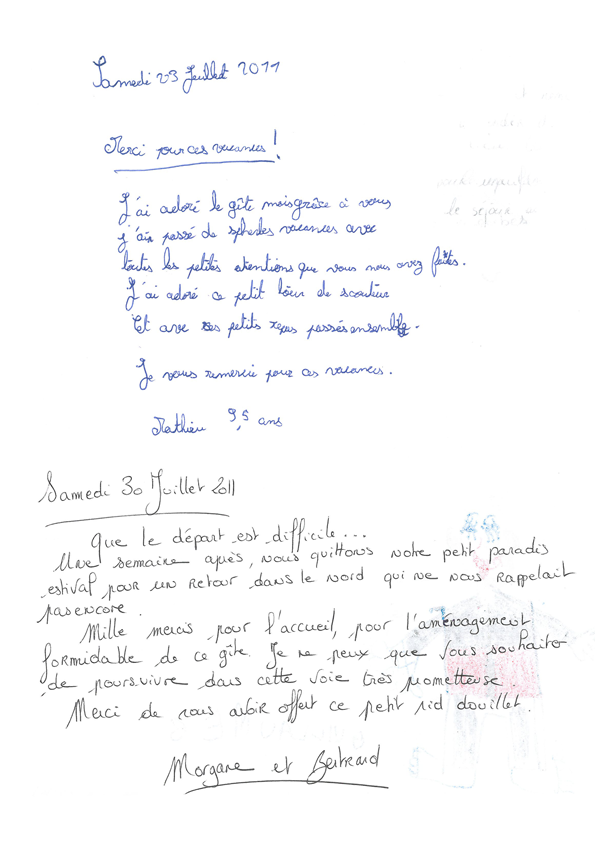 Samedi 23 Juillet 2011
Merci pour ces vacances !
J'ai adoré le gîte mais grâce à vous
j'ai passé de vacances avec
toutes les petites atentions que vous nous avez faîtes.
J'ai adoré ce petit tour de
Et avec ces petits repas passés ensemble.
Je vous remercie pour ces vacances.
Mathieu 9,5 ans
Samedi 30 Juillet 2011
Que le départ est difficile...
Une semaine après, nous quittons notre petit paradis
estival pour un retour dans le nord qui ne nous rappelait
pas encore.
Mille mercis pour l'accueil, pour l'aménagement
formidable de ce gîte. Je ne peux que vous souhaiter
de poursuivre dans cette voie très prometteuse.
Merci de nous avoir offert ce petit nid douillet.
Morgane et Bertrand